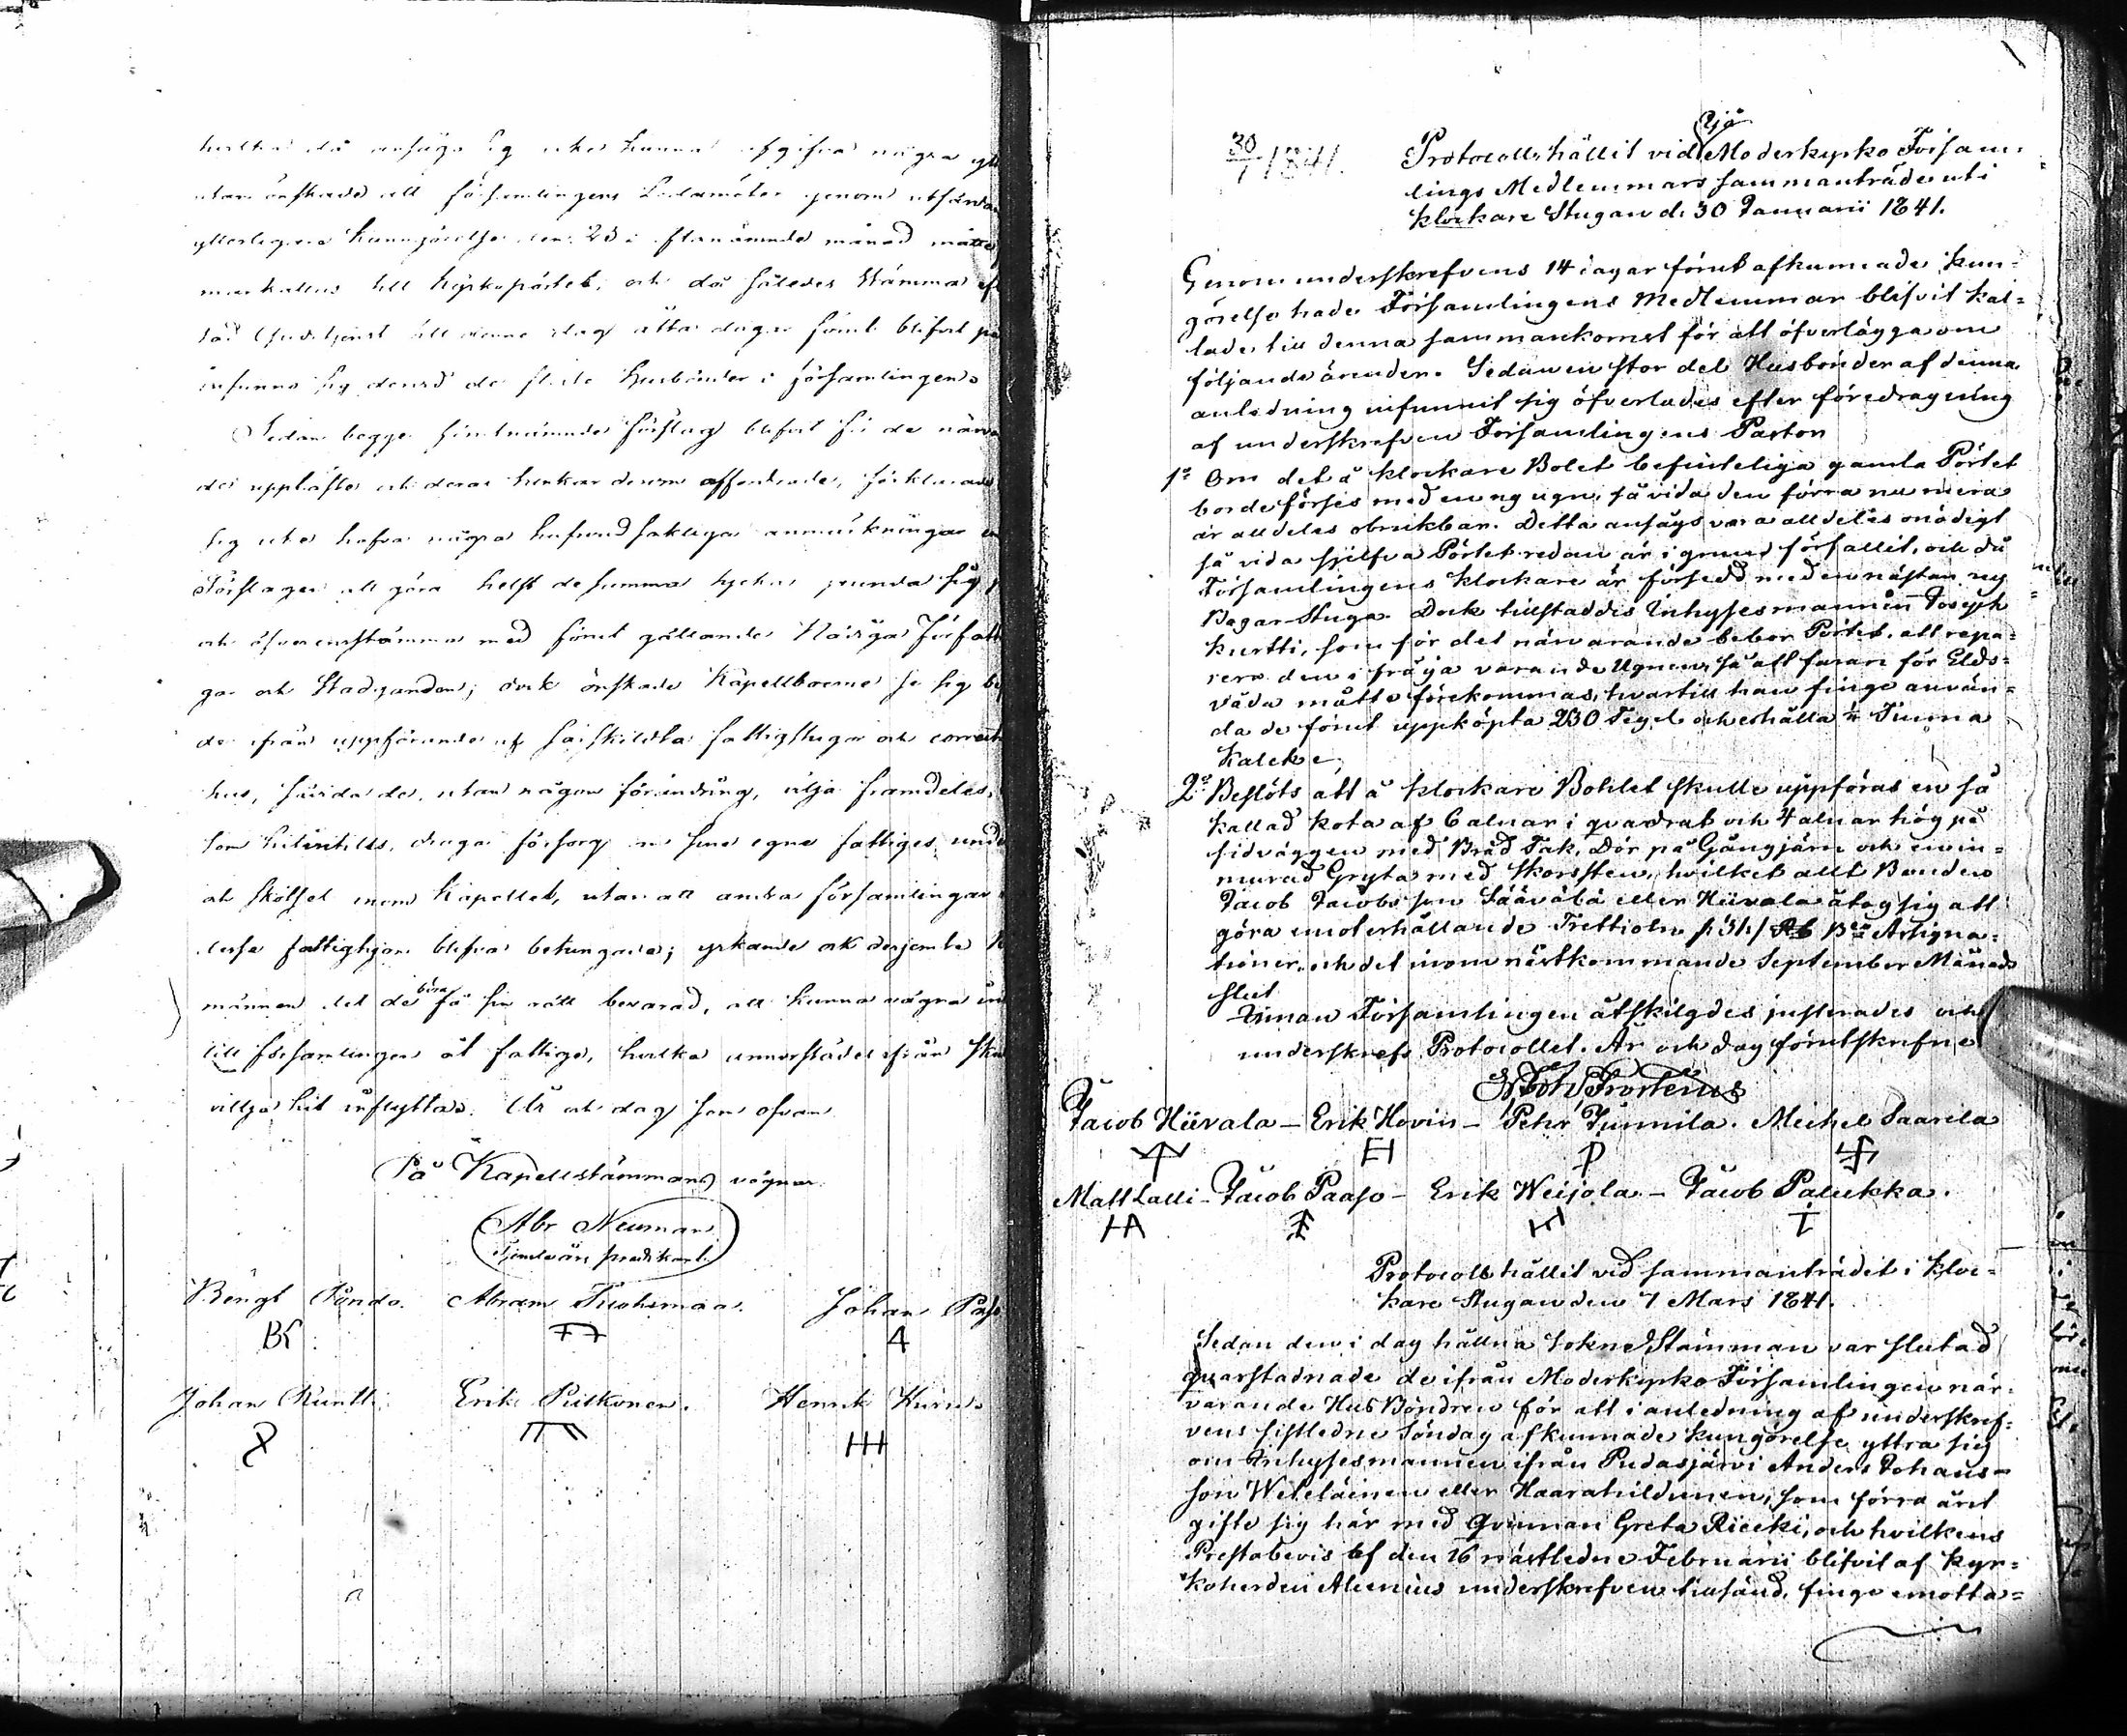 utan önskade att församlingens Ledamöter genom utfärda
ytterligare kungörelse den 23 i månad måtte
till kyrkopörtet, och då således Stämma
Gudstjenst till denne dag åtta dagar förut blifvit
sig då de fleste husbönder i församlingen.
Sedan begge förslag blifvit för de närva
de uppläste och deras tankar derom affordrade, förklarade
sig icke hafva några hufvudsakliga anmärkningar
Förslagen att göra helst de samma tyckas grunda sig
och öfverensstämma med förut gällande Nådiga Författ
gar och Stadganden; dock önskade Kapellboerne se sig be
de ifrån uppförande af särskildta fattigstugor och
hus, såvida de, utan någon förändring, vilja framdeles,
som hitintills, draga försorg om sina egna fattiges und
och skötsel inom Kapellet, utan att andra församlingar
desse fattighjon blifva betungade; yrkande ock desjemte
männen det de böra få sin rätt bevarad, att kunna vägra in
till församlingen åt fattige, hvilka annorstädes ifrån sku
villja hit inflytta. År och dag som ofvan
På Kapellstämmans vägnar
Abr Neuman
predikant.
Bengt Abram Johan
BK A
Johan Erik Pitkonen. Henrik
30/1 1841. Protocoll, hållit vid Moderkyrko Försam=
lings Medlemmars sammanträde uti
klockare Stugan d. 30 Januarii 1841.
Genom underskrefvens 14 dagar förut afkunnade kun=
görelse hade Församlingens Medlemmar blifvit kal=
lade till denna sammankomst för att öfverlägga om
följande ärenden. Sedan en stor del Husbönder af denna
anledning infunnit sig öfverlades efter föredragning
af underskrefven Församlingens Pastor
1o Om det å klockare Bolet befinteliga gamla Pörtet
borde förses med en ny ugn, så vida den förra nu mera
är alldeles obrukbar. Detta ansågs vara alldeles onödigt
så vida sjelfva Pörtet redan är i grund förfallit, och då
Församlingens klockare är försedd med en nästan ny
Bagar Stuga. Dock tillstaddes Inhysesmannen Joseph
Kurtti, som för det närvarande bebor Pörtet, att repa=
rera den i fråga varande Ugnen, så att faran för Elds=
våda måtte förekommas, hvartill han finge använ=
da de förut uppköpta 230 Tegel och erhålla ½ Tunna
Kalck.
2o Beslöts att å klockare Bohlet skulle uppföras en så
kallad kota af 6 alnar i quadrat och 4 alnar hög på
sidväggen med Bräd Tak, Dör på Gångjärn och en in=
murad Gryta med Skorsten, hvilket allt Bonden
Jacob Jacobsson Säävälä eller Hiivala åtog sig att
göra emot erhållande Trettiotre Assigna=
tioner, och det inom nästkommande September Månads
slut
Innan Församlingen åtskilgdes justerades och
underskrefs Protocollet. År och dag förutskrefne
Joh. Frosterus
Jacob Hiivala – Erik Hovin – Petr Junnila. Michel Saarela
H P
Matt Lalli – Jacob Paaso – Erik Weijola – Jacob Palukka.
HA
Protocoll hållit vid sammanträdet i kloc=
kare Stugan den 7 Mars 1841.
Sedan den i dag hållna Sokne Stämman var slutad
quarstadnade de ifrån Moderkyrko Församlingen när=
varande Hus Bönder för att i anledning af underskref=
vens sistledne Söndag afkunnade kungörelse yttra sig
om Inhysesmannen ifrån Pudasjärvi Anders Johans=
son eller som förra året
gifte sig här med Qvinnan Greta Riecki, och hvilkens
Prestabevis af den 16 nästledne Februarii blifvit af Kyr=
koherden underskrefven tillsänd, finge emottas=